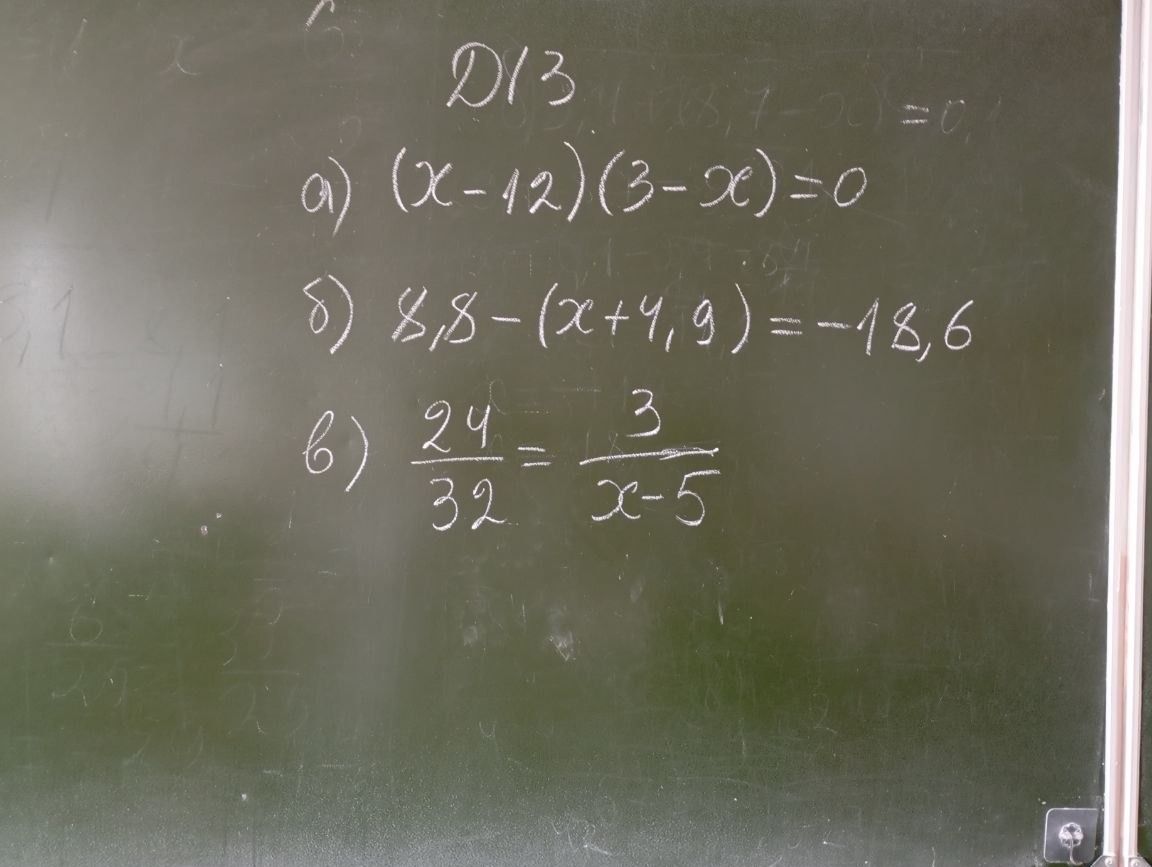 Д/З
а) (x-12)(3-x)=0
б) 8,8-(x+4,9)=-18,6
в) 24/32=3/(x-5)